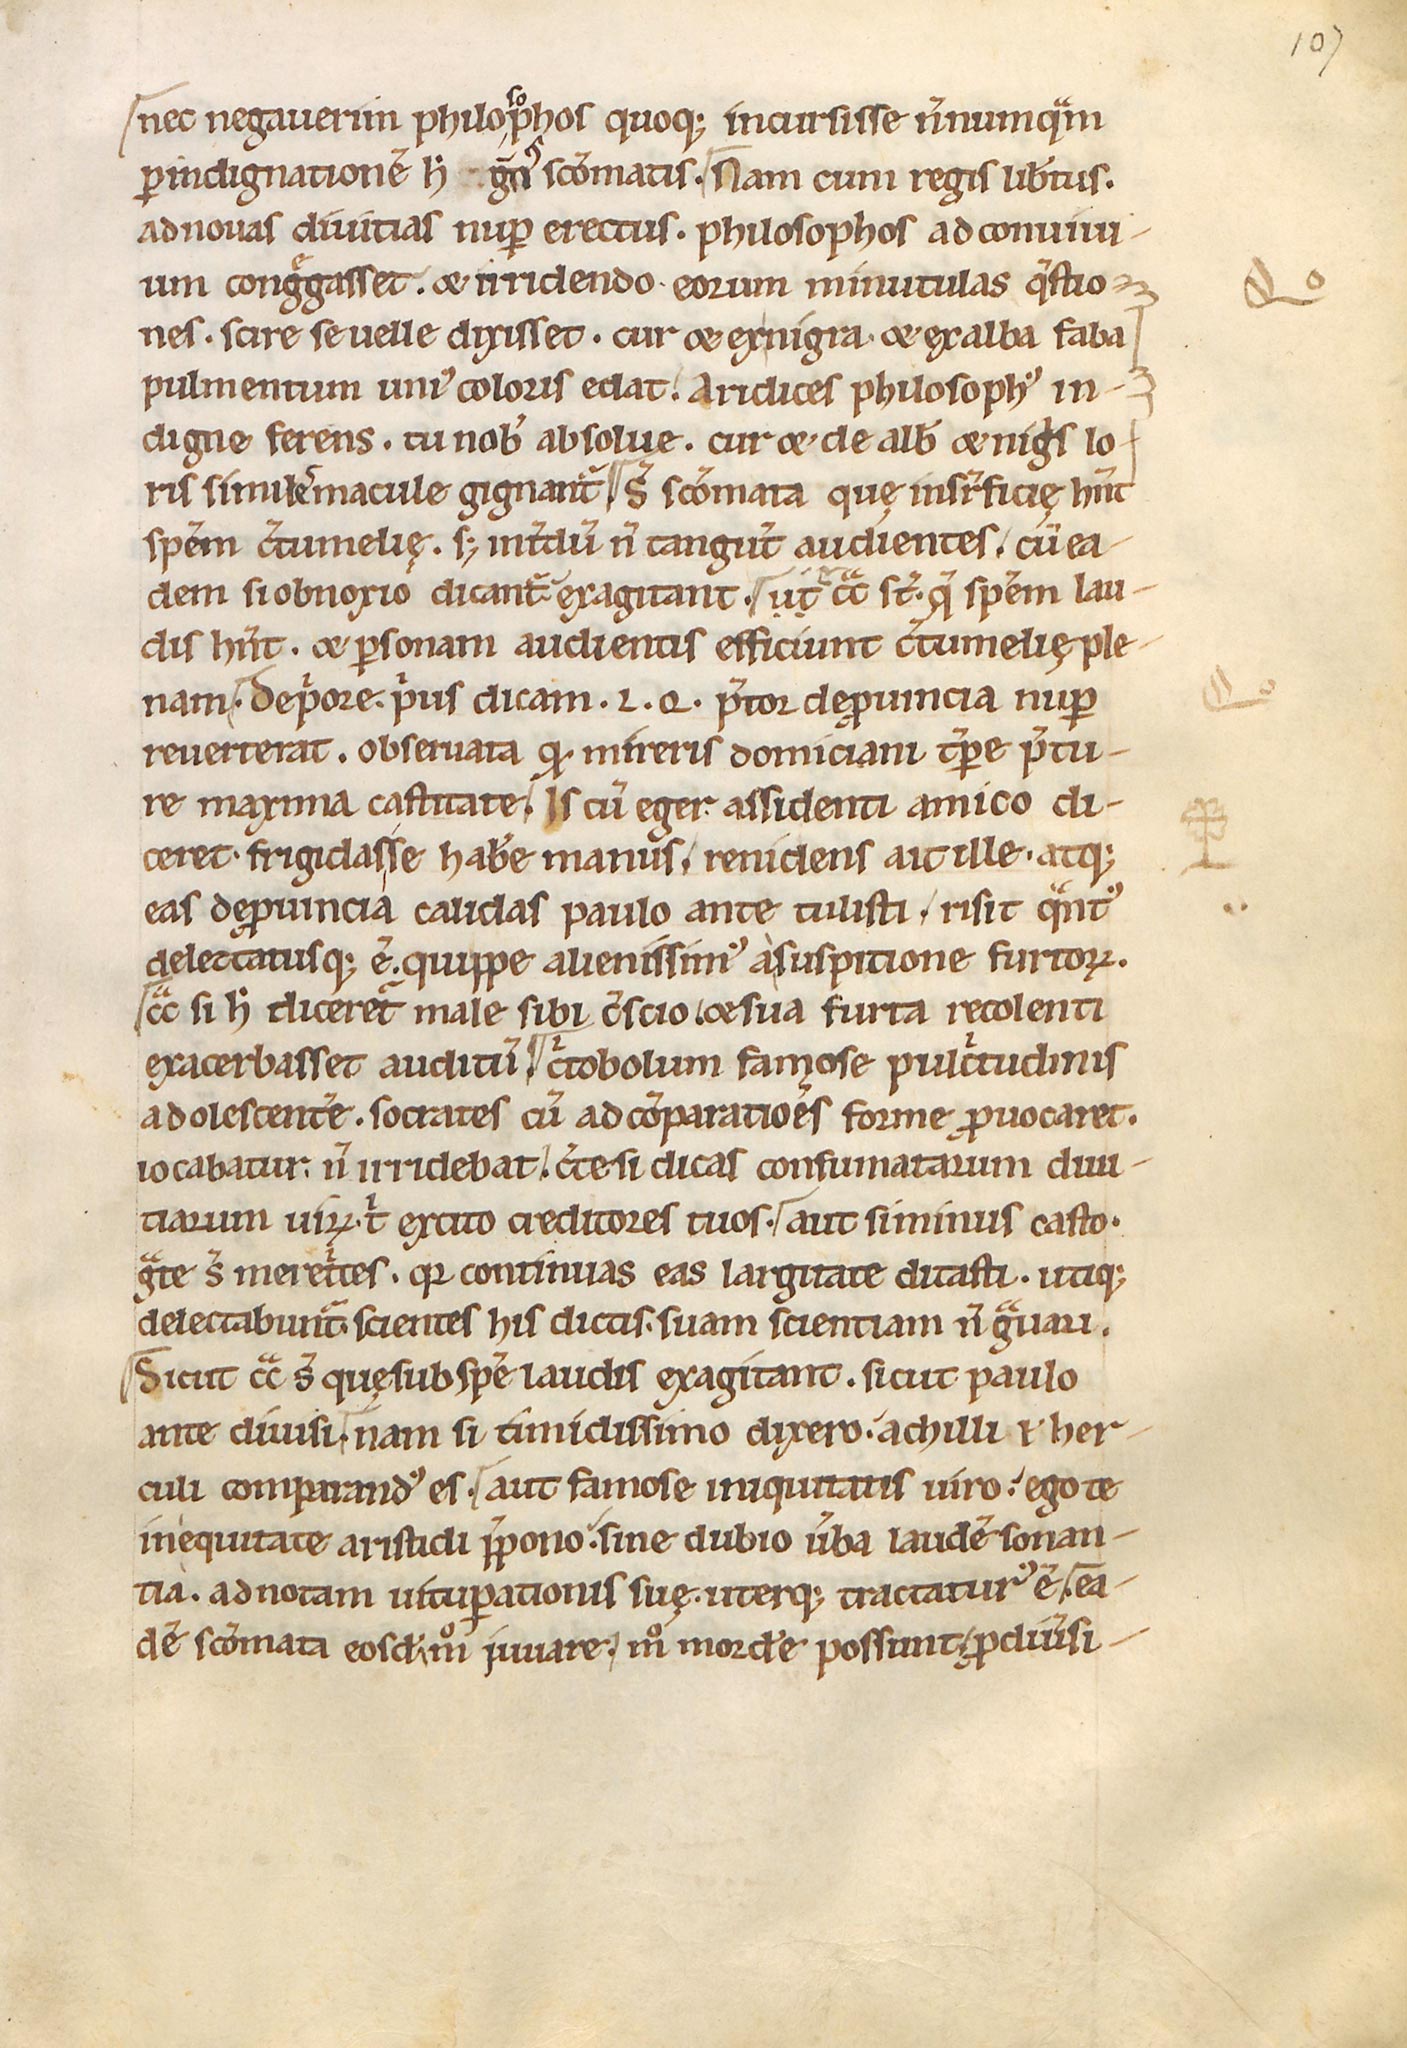 107
nec negauerim philosophos quoq; incursisse n̄numqᵃm
ꝑindignationē h̄ gn̄s scōmatis. Nam cum regis lib̄tus.
ad nouas diuitias nuꝑ erectus. philosophos ad conuiui-
um conḡgasset. & irridendo eorum minutulas q̄stio-
nes. scire se uelle dixisset. cur & ex nigra & ex alba faba
pulmentum uniꝰ coloris edat. Aridices philosophꝰ in-
digne ferens. tu nob̄ absolue. cur & de alb̄ & nigͥs lo-
ris similēmacule gignant᷑. S̄ scōmata quę insꝑ̄ficię hn̄t
spēm c̄tumelię. s; int̄dū n̄ tangūt audientes. cū ea-
dem si obnoxio dicant᷑ exagitant. ut ccᵃ st̄. q̄ spēm lau-
dis hn̄t. & ꝑsonam audientis efficiunt c̄tumelię ple-
nam. De pͥore pͥus dicam. L. Q. p̄tor deꝓuincia nuꝑ
reuerterat. obseruata qͦ mireris domiciani tꝑ̄e p̄tu-
re maxima castitate. Is cū eger assidenti amico di-
ceret. frigidasse hab̄e manus. renidens ait ille. atq;
eas deꝓuincia calidas paulo ante tulisti. risit qᵃntꝰ
delectatusq; ē. quippe alienissimꝰ a suspitione furtoꝝ.
ccᵃ si h̄ diceret᷑ male sibi c̄scio. & sua furta recolenti
exacerbasset auditū. cͥtobolum famose pulcͥtudinis
adolescentē. socrates cū ad cōparatioēs forme ꝓuocaret.
iocabatur. n̄ irridebat. c̄te si dicas consumatarum diui-
tiarum uiꝝ. tͥ excito creditores tuos. aut si minus casto.
gᵃte s̄ meretͥces. qꝛ continuas eas largitate ditasti. utiq;
delectabunt᷑ scientes his dictis. suam scientiam n̄ gᵃuari.
Sicut ccᵃ s̄ quę sub spē laudis exagitant. sicut paulo
ante diuisi. nam si timidissimo dixero. achilli & her-
culi comparandꝰ es. aut famose iniquitatis uiro. ego te
inequitate aristidi p̄pono. sine dubio ūba laudē sonan-
tia. ad notam uituꝑationis suę. uterq; tractaturꝰ ē. ea-
dē scōmata eosd̄. mͦ iuuare. mͦ mord̄e possunt ꝓ diūsi-